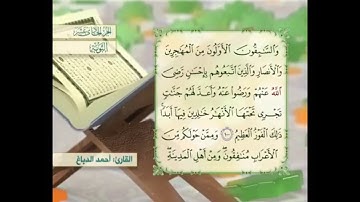 الجزء الحادي عشر
التوبة
وَالسَّٰبِقُونَ الْأَوَّلُونَ مِنَ الْمُهَٰجِرِينَ
وَالْأَنصَارِ وَالَّذِينَ اتَّبَعُوهُم بِإِحْسَٰنٍ رَّضِىَ
اللَّهُ عَنْهُمْ وَرَضُوا۟ عَنْهُ وَأَعَدَّ لَهُمْ جَنَّٰتٍ
تَجْرِى تَحْتَهَا الْأَنْهَٰرُ خَٰلِدِينَ فِيهَآ أَبَدًا
ذَٰلِكَ الْفَوْزُ الْعَظِيمُ ١٠٠ وَمِمَّنْ حَوْلَكُم مِّنَ
الْأَعْرَابِ مُنَٰفِقُونَ وَمِنْ أَهْلِ الْمَدِينَةِ
القارئ: أحمد الدباغ